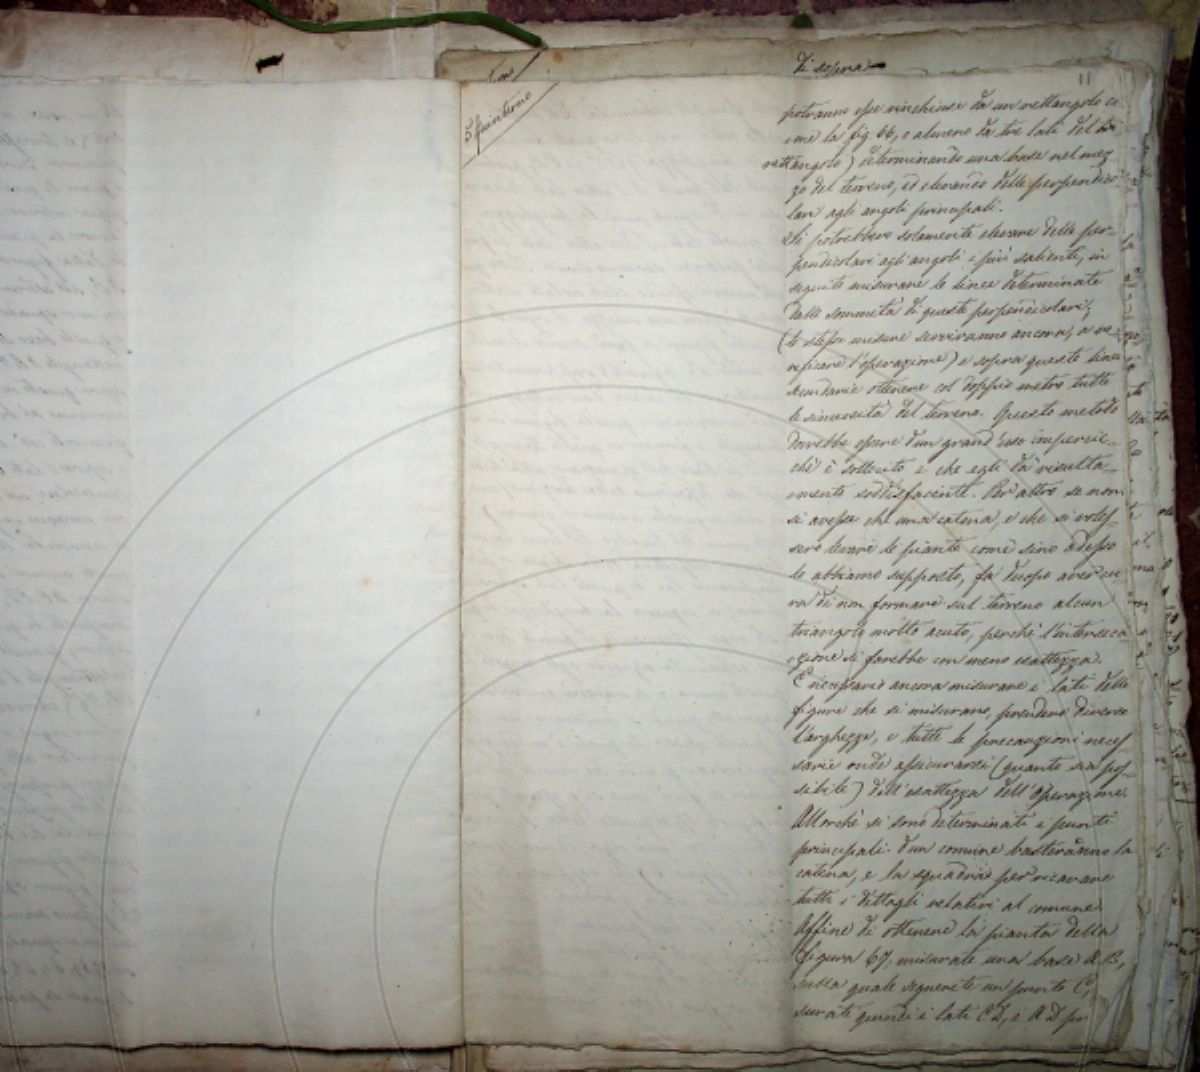 Di sopra
11
5° quinterno
potranno esse rinchiuse da un rettangolo co
me la fig. 66, o almeno da tre lati del
rettangolo) determinando una base nel mez
zo del terreno, ed elevando delle perpendico
lari agli angoli principali.
Si potrebbero solamente elevare delle per-
pendicolari agl'angoli i più salienti, in
seguito misurare le linee determinate
dalle sommetà di queste perpendicolari,
(le stesse misure serviranno ancora, a ve-
rificare l'operazione) e sopra queste linee
secundarie ottenere col doppio metro tutte
le sinuosità del terreno. Questo metodo
dovrebbe essere d'un grand'uso impercioc-
chè è sollecito e che egli dà risulta-
mento soddisfaciente. Per altro se non
si avesse che una catena, e che si voles
sero levare le piante come sino adesso
lo abbiamo supposto, fa duopo aver cu
ra di non formare sul terreno alcun
triangolo molto acuto, perchè l'interseca
zione si farebbe con meno esattezza.
È necessario ancora misurare i lati delle
figure che si misurano, prendere diverse
larghezze, e tutte le precauzioni neces
sarie onde assicurarsi (quanto sia pos-
sibile) dell'esattezza dell'Operazione.
Allorchè si sono determinati i punti
principali d'un comune basteranno la
catena, e la squadra per ricavare
tutti i dettagli relativi al comune.
Affine di ottenere la pianta della
figura 67, misurate una base A B,
sulla quale segnerete un punto C,
surate quindi i lati C D, e A D per